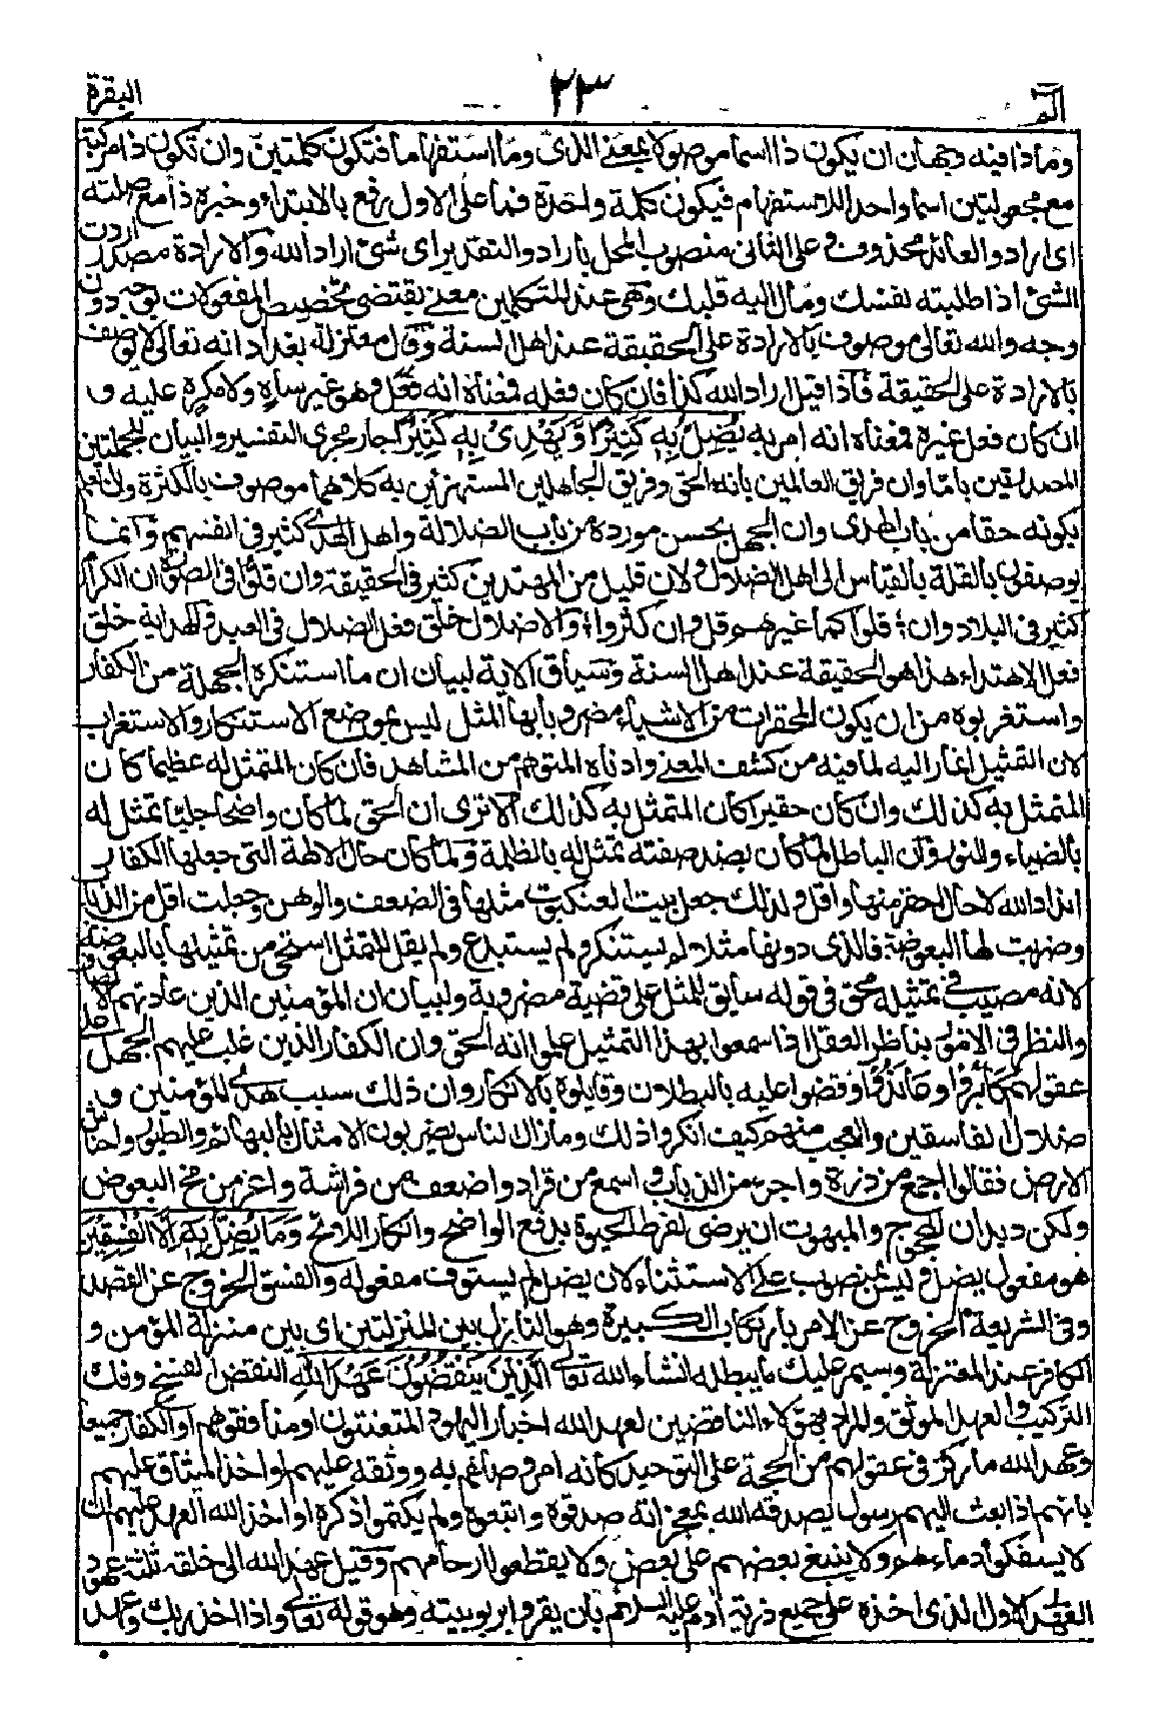 الم
٢٣
البقرة
وماذا فيه وجهان ان يكون ذا اسما موصولا بمعنى الذى وما استفهاما فتكون كلمتين وان تكون ذا مركبة
مع ما مجعولتين اسما واحدا للاستفهام فيكون كلمة واحدة فما على الاول رفع بالابتداء وخبره ذا مع صلته
اى اراد والعائد محذوف وعلى الثانى منصوب المحل باراد والتقدير اى شئ اراد الله والارادة مصدر اردت
الشئ اذا طلبته نفسك ومال اليه قلبك وهى عند المتكلمين معنى يقتضى تخصيص المفعولات بوجه دون
وجه والله تعالى موصوف بالارادة على الحقيقة عند اهل السنة وقال معتزلة بغداد انه تعالى لا يوصف
بالارادة على الحقيقة فاذا قيل اراد الله كذا فان كان فعله فمعناه انه فعل وهو غير ساه ولا مكره عليه و
ان كان فعل غيره فمعناه انه امر به يُضِلُّ بِهٖ كَثِيْرًا وَّيَهْدِىْ بِهٖ كَثِيْرًا جار مجرى التفسير والبيان للجملتين
المصدرتين باما وان فريق العالمين بانه الحق وفريق الجاهلين المستهزئين به كلاهما موصوف بالكثرة وان العلم
بكونه حقا من باب الهدى وان الجهل بحسن مورده من باب الضلالة واهل الهدى كثير فى انفسهم وانما
يوصفون بالقلة بالقياس الى اهل الضلال ولان قليل من المهتدين كثير فى الحقيقة وان قلوا فى الصورة ان الكرام
كثير فى البلاد وان ؛ قلوا كما غيرهم قل وان كثروا ؛ والاضلال خلق فعل الضلال فى العبد والهداية خلق
فعل الاهتداء هذا هو الحقيقة عند اهل السنة وسياق الاية لبيان ان ما استنكره الجهلة من الكفار
واستغربوه من ان يكون المحقرات من الاشياء مضروبا بها المثل ليس بموضع الاستنكار والاستغراب
لان التمثيل انما ار اليه لما فيه من كشف المعنى وادناه المتوهم من المشاهد فان كان المتمثل له عظيما كان
المتمثل به كذلك وان كان حقيرا كان المتمثل به كذلك الا ترى ان الحق لما كان واضحا جليا تمثل له
بالضياء والنور وان الباطل لما كان بضد صفته تمثل له بالظلمة ولما كان حال الالهة التى جعلها الكفار
اندادا لله لا حال احقر منها واقل ولذلك جعل بيت العنكبوت مثلها فى الضعف والوهن وجعلت اقل من الذباب
وضربت لها البعوضة فالذى دونها مثلا لم يستنكر ولم يستبدع ولم يقل للمتمثل استحى من تمثيلها بالبعوضة
لانه مصيب فى تمثيله محق فى قوله سايق للمثل على قضية مضروبة ولبيان ان المؤمنين الذين عادتهم الانصاف
والنظر فى الامور بناظر العقل اذا سمعوا بهذا التمثيل علموا انه الحق وان الكفار الذين غلب عليهم الجهل
عقولهم كابروا وعاندوا وقضوا عليه بالبطلان وقابلوه بالانكار وان ذلك سبب هدى المؤمنين و
ضلال الفاسقين والعجب منهم كيف انكروا ذلك وما زال الناس يضربون الامثال بالبهائم والطيور واحناش
الارض فقالوا اجمع من ذرة واجرء من الذباب واسمع من قراد واضعف من فراشة واعز من مخ البعوض
ولكن ديدان المحجوج والمبهوت ان يرضى لفرط الحيرة بدفع الواضح وانكار اللائح وَمَا يُضِلُّ بِهٖٓ اِلَّا الْفٰسِقِيْنَ
هو مفعول يضل وليس بمنصوب على الاستثناء لان يضل لم يستوف مفعوله والفسق الخروج عن القصد
وفى الشريعة الخروج عن الامر بارتكاب الكبيرة وهو النازل بين المنزلتين اى بين منزلة المؤمن و
الكافر عند المعتزلة وسيمر عليك ما يبطله انشاء الله تعالى الَّذِيْنَ يَنْقُضُوْنَ عَهْدَ اللّٰهِ النقض الفسخ وفك
التركيب والعهد الموثق والمراد بهؤلاء الناقضين لعهد الله احبار اليهود المتعنتون او منافقوهم او الكفار جميعا
وعهد الله ما ركز فى عقولهم من الحجة على التوحيد كانه امر وصاهم به ووثقه عليهم او اخذ الميثاق عليهم
بانهم اذا بعث اليهم رسول يصدقه الله بمعجزاته صدقوه واتبعوه ولم يكتموا ذكره او اخذ الله العهد عليهم ان
لا يسفكوا دماءهم ولا يبغى بعضهم على بعض ولا يقطعوا ارحامهم وقيل عهد الله الى خلقه ثلثة عهود
العهد الاول الذى اخذه على جميع ذرية ادم عليه السلام بان يقروا بربوبيته وهو قوله تعالى واذا اخذ ربك وعهد